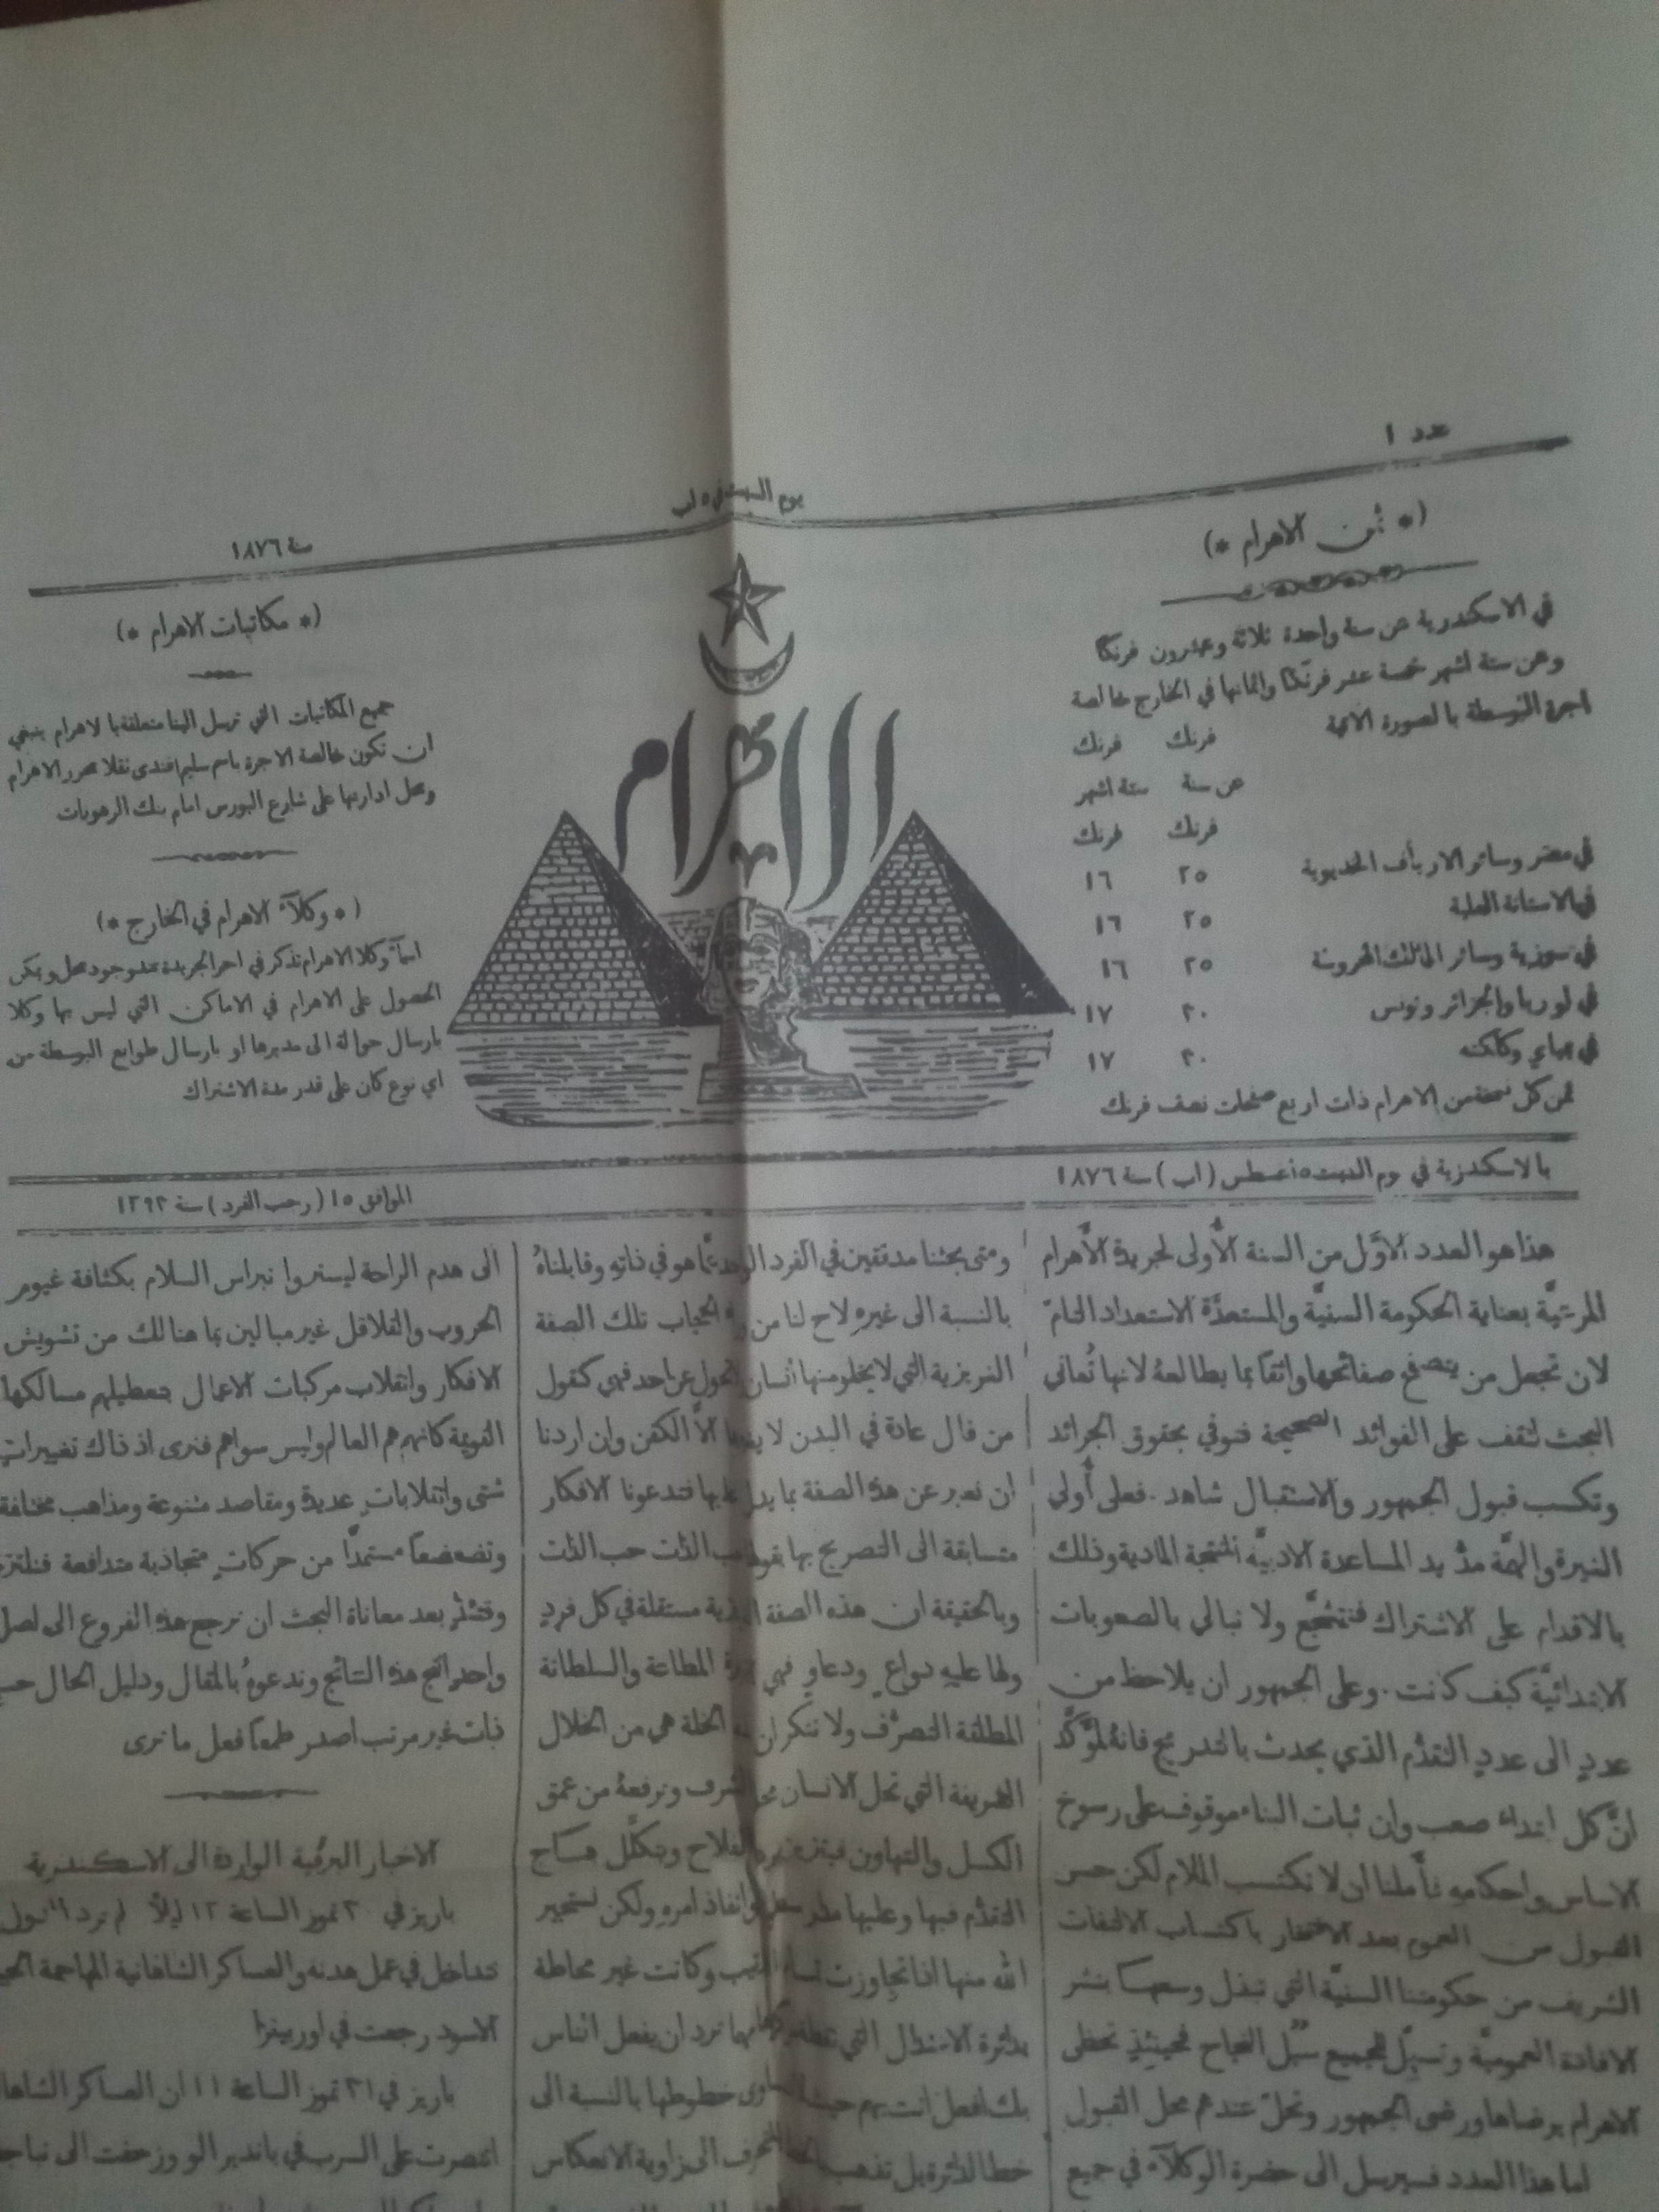 عدد ١
يوم السبت في ٥ اب
سنة ١٨٧٦
(* ثمن الاهرام *)
في الاسكندرية عن سنة واحدة ثلاثة وعشرون فرنكا
وعن ستة اشهر خمسة عشر فرنكا واثمانها في الخارج خالصة
اجرة البوسطة بالصورة الاتية
فرنك فرنك
عن سنة ستة اشهر
فرنك فرنك
في مصر وسائر الارياف الخديوية ٢٥ ١٦
في الاستانة العلية ٢٥ ١٦
في سورية وسائر الممالك المحروسة ٢٥ ١٦
في اوربا والجزائر وتونس ٣٠ ١٧
في بمباي وكلكته ٣٠ ١٧
ثمن كل نسخة من الاهرام ذات اربع صفحات نصف فرنك
الاهرام
(* مكاتبات الاهرام *)
جميع المكاتبات التي ترسل الينا متعلقة بالاهرام ينبغي
ان تكون خالصة الاجرة باسم سليم افندي تقلا محرر الاهرام
ومحل ادارتها على شارع البورس امام بنك الرهونات
(* وكلآء الاهرام في الخارج *)
اسمآء وكلا الاهرام تذكر في اخر الجريدة عند وجود محل ويمكن
الحصول على الاهرام في الاماكن التي ليس بها وكلا
بارسال حوالة الى مديرها او بارسال طوابع البوسطة من
اي نوع كان على قدر مدة الاشتراك
بالاسكندرية في يوم السبت ٥ اغسطس (اب) سنة ١٨٧٦
الموافق ١٥ (رجب الفرد) سنة ١٢٩٣
هذا هو العدد الأوّل من السنة الأولى لجريدة الأهرام
المرعيّة بعناية الحكومة السنيَّة والمستعدَّة الاستعداد التامّ
لان تجعل من يتصفح صفائحها واثقًا بما يطالعهُ لانها تُعاني
البحث لتقف على الفوائد الصحيحة فتوفي بحقوق الجرائد
وتكسب قبول الجمهور والاستقبال شاهد . فعلى أُولي
الغيرة والهمَّة مدُّ يد المساعدة الادبيَّة المنتجة المادية وذلك
بالاقدام على الاشتراك فنتشجَّع ولا نبالي بالصعوبات
الابتدائيَّة كيف كانت . وعلى الجمهور ان يلاحظ من
عددٍ الى عددٍ التقدُّم الذي يحدث بالتدريج فانهُ لمؤَكَّد
انَّ كل ابتداء صعب وان ثبات البناء موقوف على رسوخ
الاساس واحكامهِ فأملنا ان لا نكتسب الملام لكن حسن
القبول من العموم بعد الافتخار باكتساب الالتفات
الشريف من حكومتنا السنيَّة التي تبذل وسعها بنشر
الافادة العموميَّة وتسهيل للجميع سُبُل النجاح فحينئذٍ تحظى
الاهرام برضاها ورضى الجمهور وتحلّ عندهم محل القبول
اما هذا العدد فسيرسل الى حضرة الوكلآء في جميع
ومتى بحثنا مدققين في الفرد الواحد عمَّا هو في ذاتهِ وقابلناهُ
بالنسبة الى غيره لاح لنا من الحجاب تلك الصفة
الغريزية التي لا يخلو منها انسان لتحول عن احد فهي كقول
من قال عادة في البدن لا يغيرها الَّا الكفن وان اردنا
ان نعبر عن هذه الصفة بما يدل عليها فتدعونا الافكار
متسابقة الى التصريح بها بقولنا حب الذَّت حب الذَّت
وبالحقيقة ان هذه الصفة مستقلة في كل فردٍ
ولها عليهِ دواعٍ ودعاوٍ فهي المطاعة والسلطانة
المطلقة التصرُّف ولا ننكر ان الخلة هي من الخلال
الشريفة التي تحل الانسان محل الشرف وترفعهُ من عمق
الكسل والتهاون الفلاح ويتكلَّل بتاج
التقدُّم فيها وعليها وانفاذ امرهِ ولكن نستجير
الله منها اذا تجاوزت وكانت غير محاطة
بدائرة الاعتدال التي ترد ان يفعل الناس
بك افعل انت بهم حيث خطوطها بالنسبة الى
خط الدائرة بل تذهب الى زاوية الانعكاس
الى هدم الراحة ليستروا نبراس السلام بكثافة غيوم
الحروب والقلاقل غير مبالين بما هنالك من تشويش
الافكار وانقلاب مركبات الاعمال بتعطيلهم مسالكها
القويمة كانهم هم العالم وليس سواهم فنرى اذ ذاك تغييرات
شتى وانقلاباتٍ عديدة ومقاصد متنوعة ومذاهب مختلفة
وتضعضعًا مستمدًّا من حركاتٍ متجاذبة متدافعة فنلتزم
بعد معاناة البحث ان نرجع هذه الفروع الى اصل
واحد انتج هذه النتائج وندعوهُ بالمقال ودليل الحال حب
ذات غير مرتب اصدر طمعًا فعل ما ترى
الاخبار البرقية الواردة الى الاسكندرية
باريز في ٣٠ تموز الساعة ١٢ ليلاً لم ترد الدول
تتداخل في عمل هدنه والعساكر الشاهانية المهاجمة الجبل
الاسود رجعت في اوربيغزا
باريز في ٣١ تموز الساعة ١١ ان العساكر الشاهانية
انتصرت على السرب في بانديرالو وزحفت الى